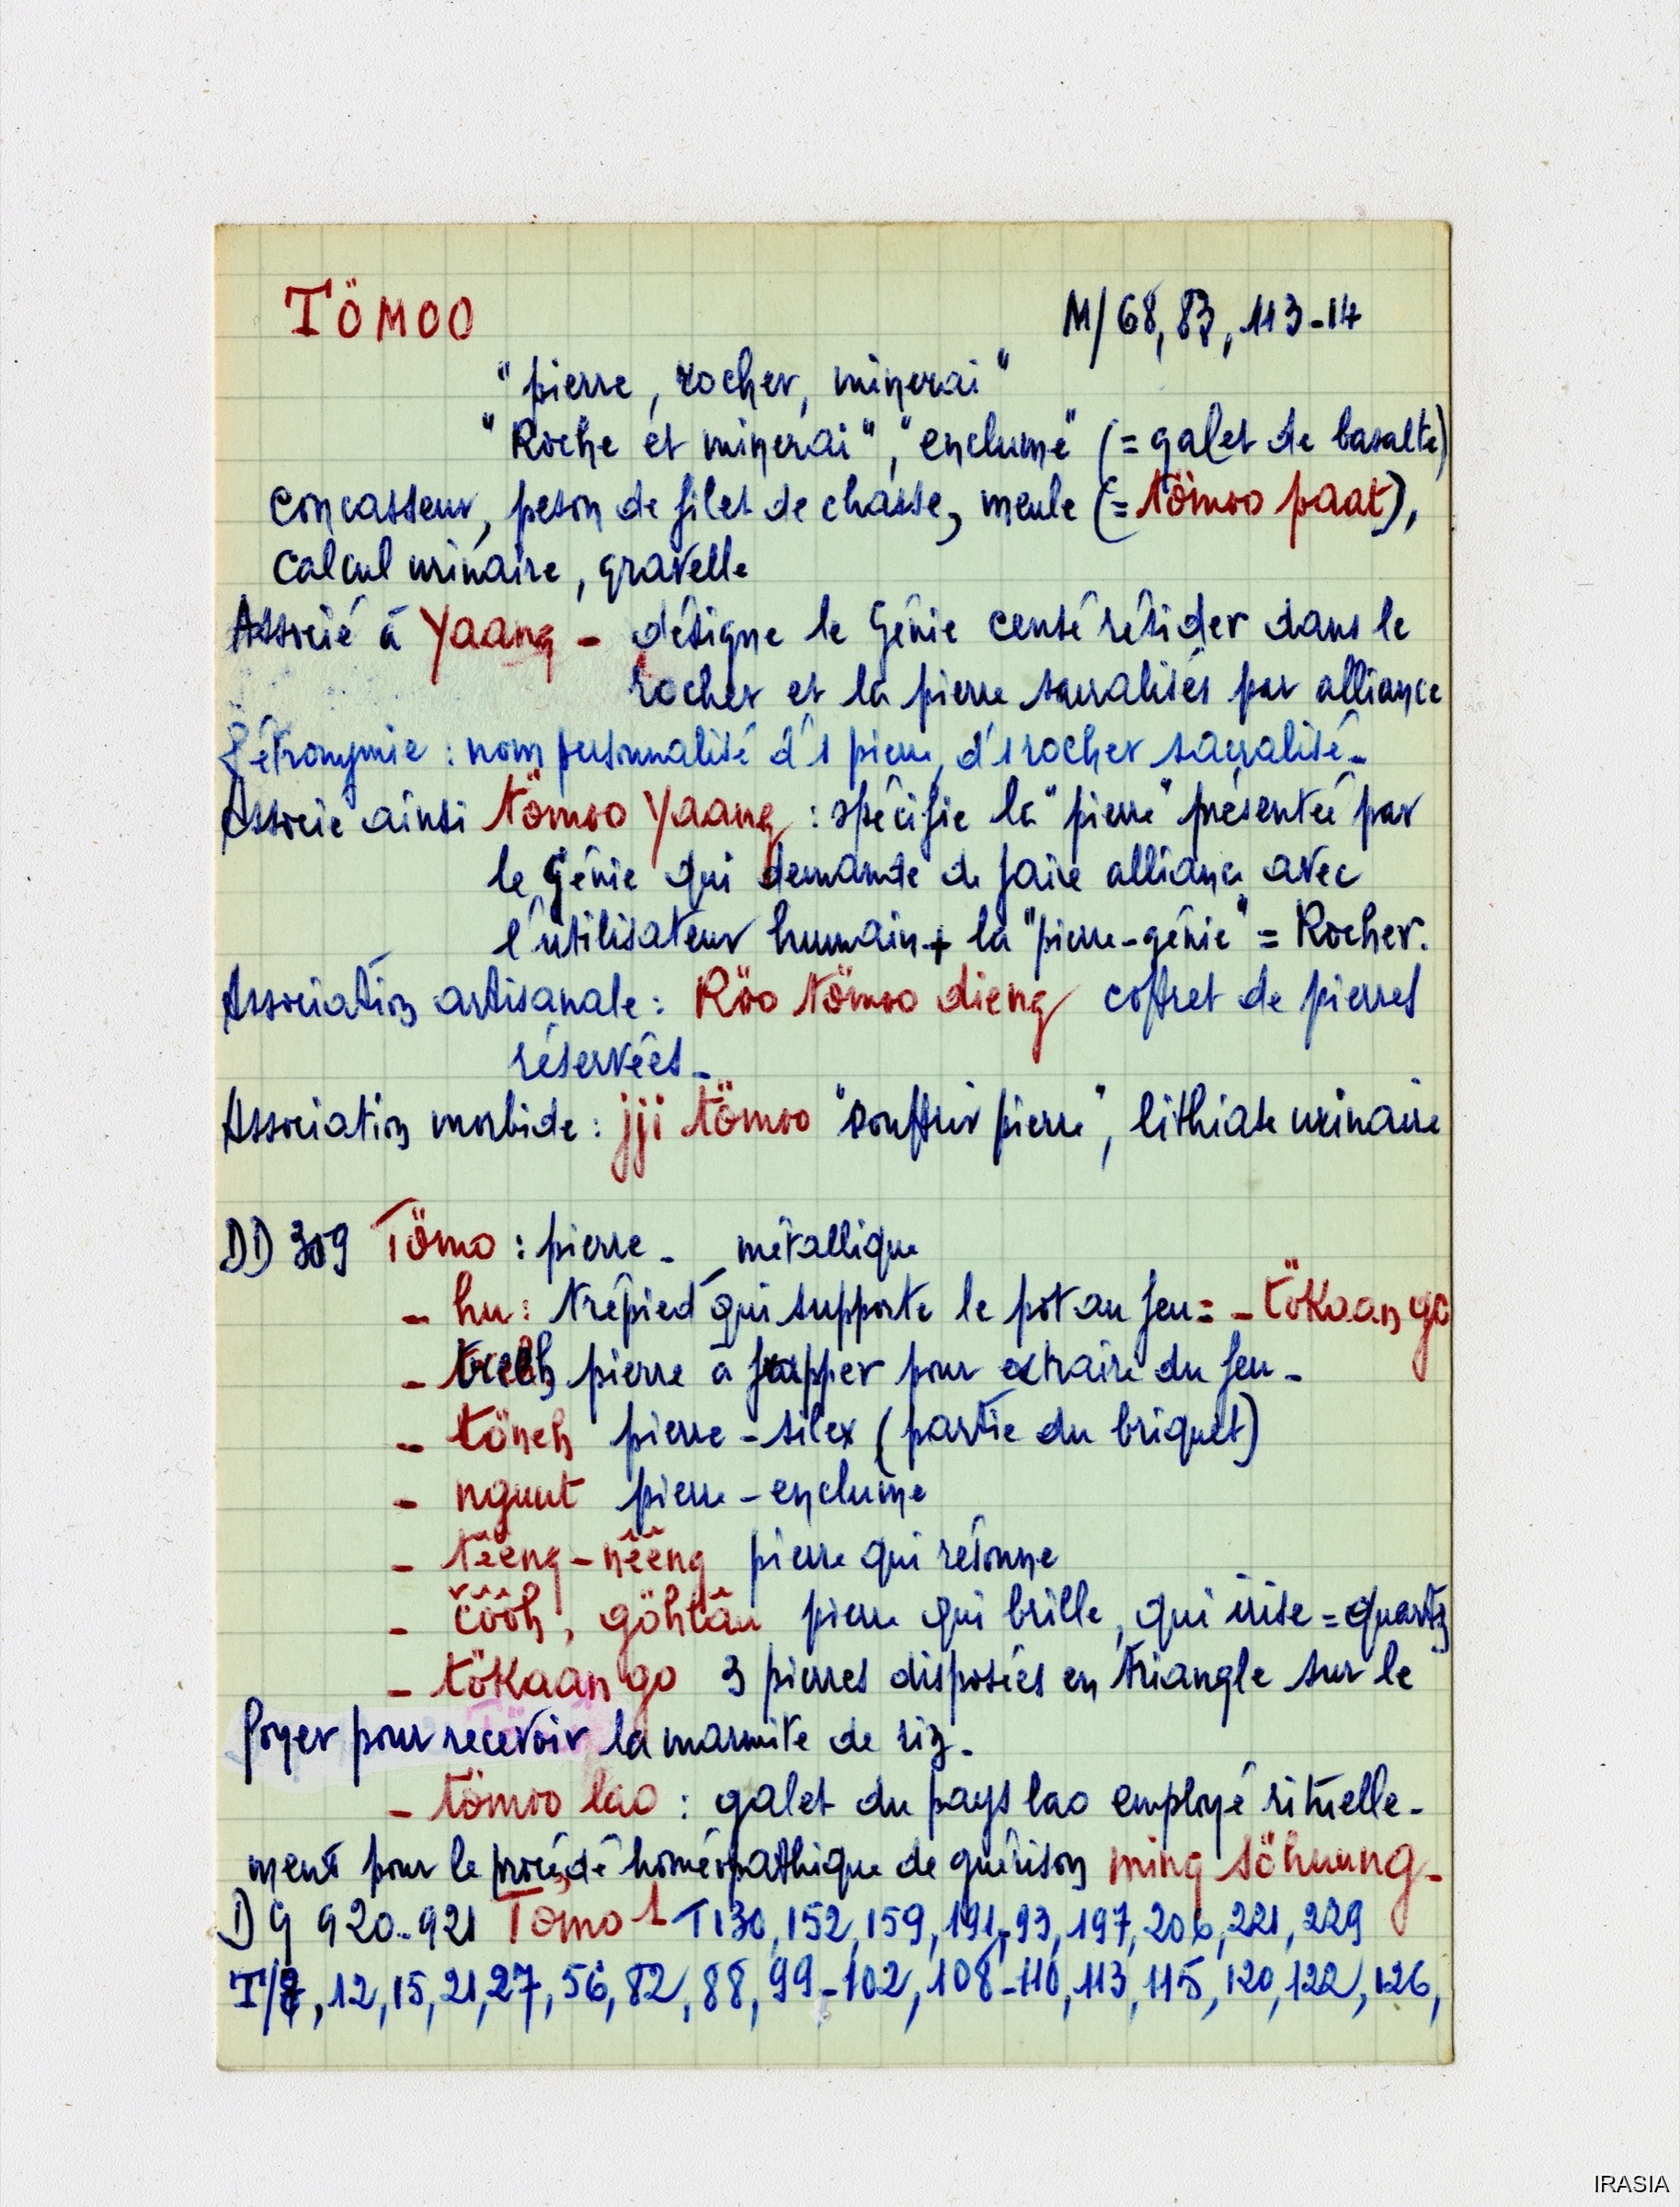 TÖMOO M/68, 83, 113-14
"pierre, rocher, minerai"
"Roche et minerai", "enclume" (= galet de basalte)
concasseur, peson de filet de chasse, meule (= tömoo paat),
calcul urinaire, gravelle
Associé à Yaang - désigne le Génie censé résider dans le
rocher et la pierre sacralisés par alliance
Pétronymie : nom personnalisé d'1 pierre, d'1 rocher sacralisé -
Associé ainsi tömoo Yaang : spécifie la "pierre" présentée par
le Génie qui demande de faire alliance avec
l'utilisateur humain + la "pierre-génie" = Rocher.
Association artisanale : Röo tömoo dieng coffret de pierres
réservées -
Association morbide : jji tömoo "souffrir pierre", lithiase urinaire
DD 309 Tömo : pierre - métallique
- hu : trépied qui supporte le pot au feu = - tökaan go
- pierre à frapper pour extraire du feu -
- töneh pierre-silex (partie du briquet)
- nguut pierre-enclume
- têêng-nêêng pierre qui résonne
- čôôh, göhlâu pierre qui brille, qui irise = quartz
- tökaan go 3 pierres disposées en triangle sur le
foyer pour recevoir la marmite de riz -
- tömoo lao : galet du pays lao employé rituelle-
ment pour le procédé homéopathique de guérison ming söhuung -
DG 920-921 Tömo 1 T130, 152, 159, 191-93, 197, 206, 221, 229
12, 15, 21, 27, 56, 82, 88, 99-102, 108-110, 113, 115, 120, 122, 126,
IRASIA